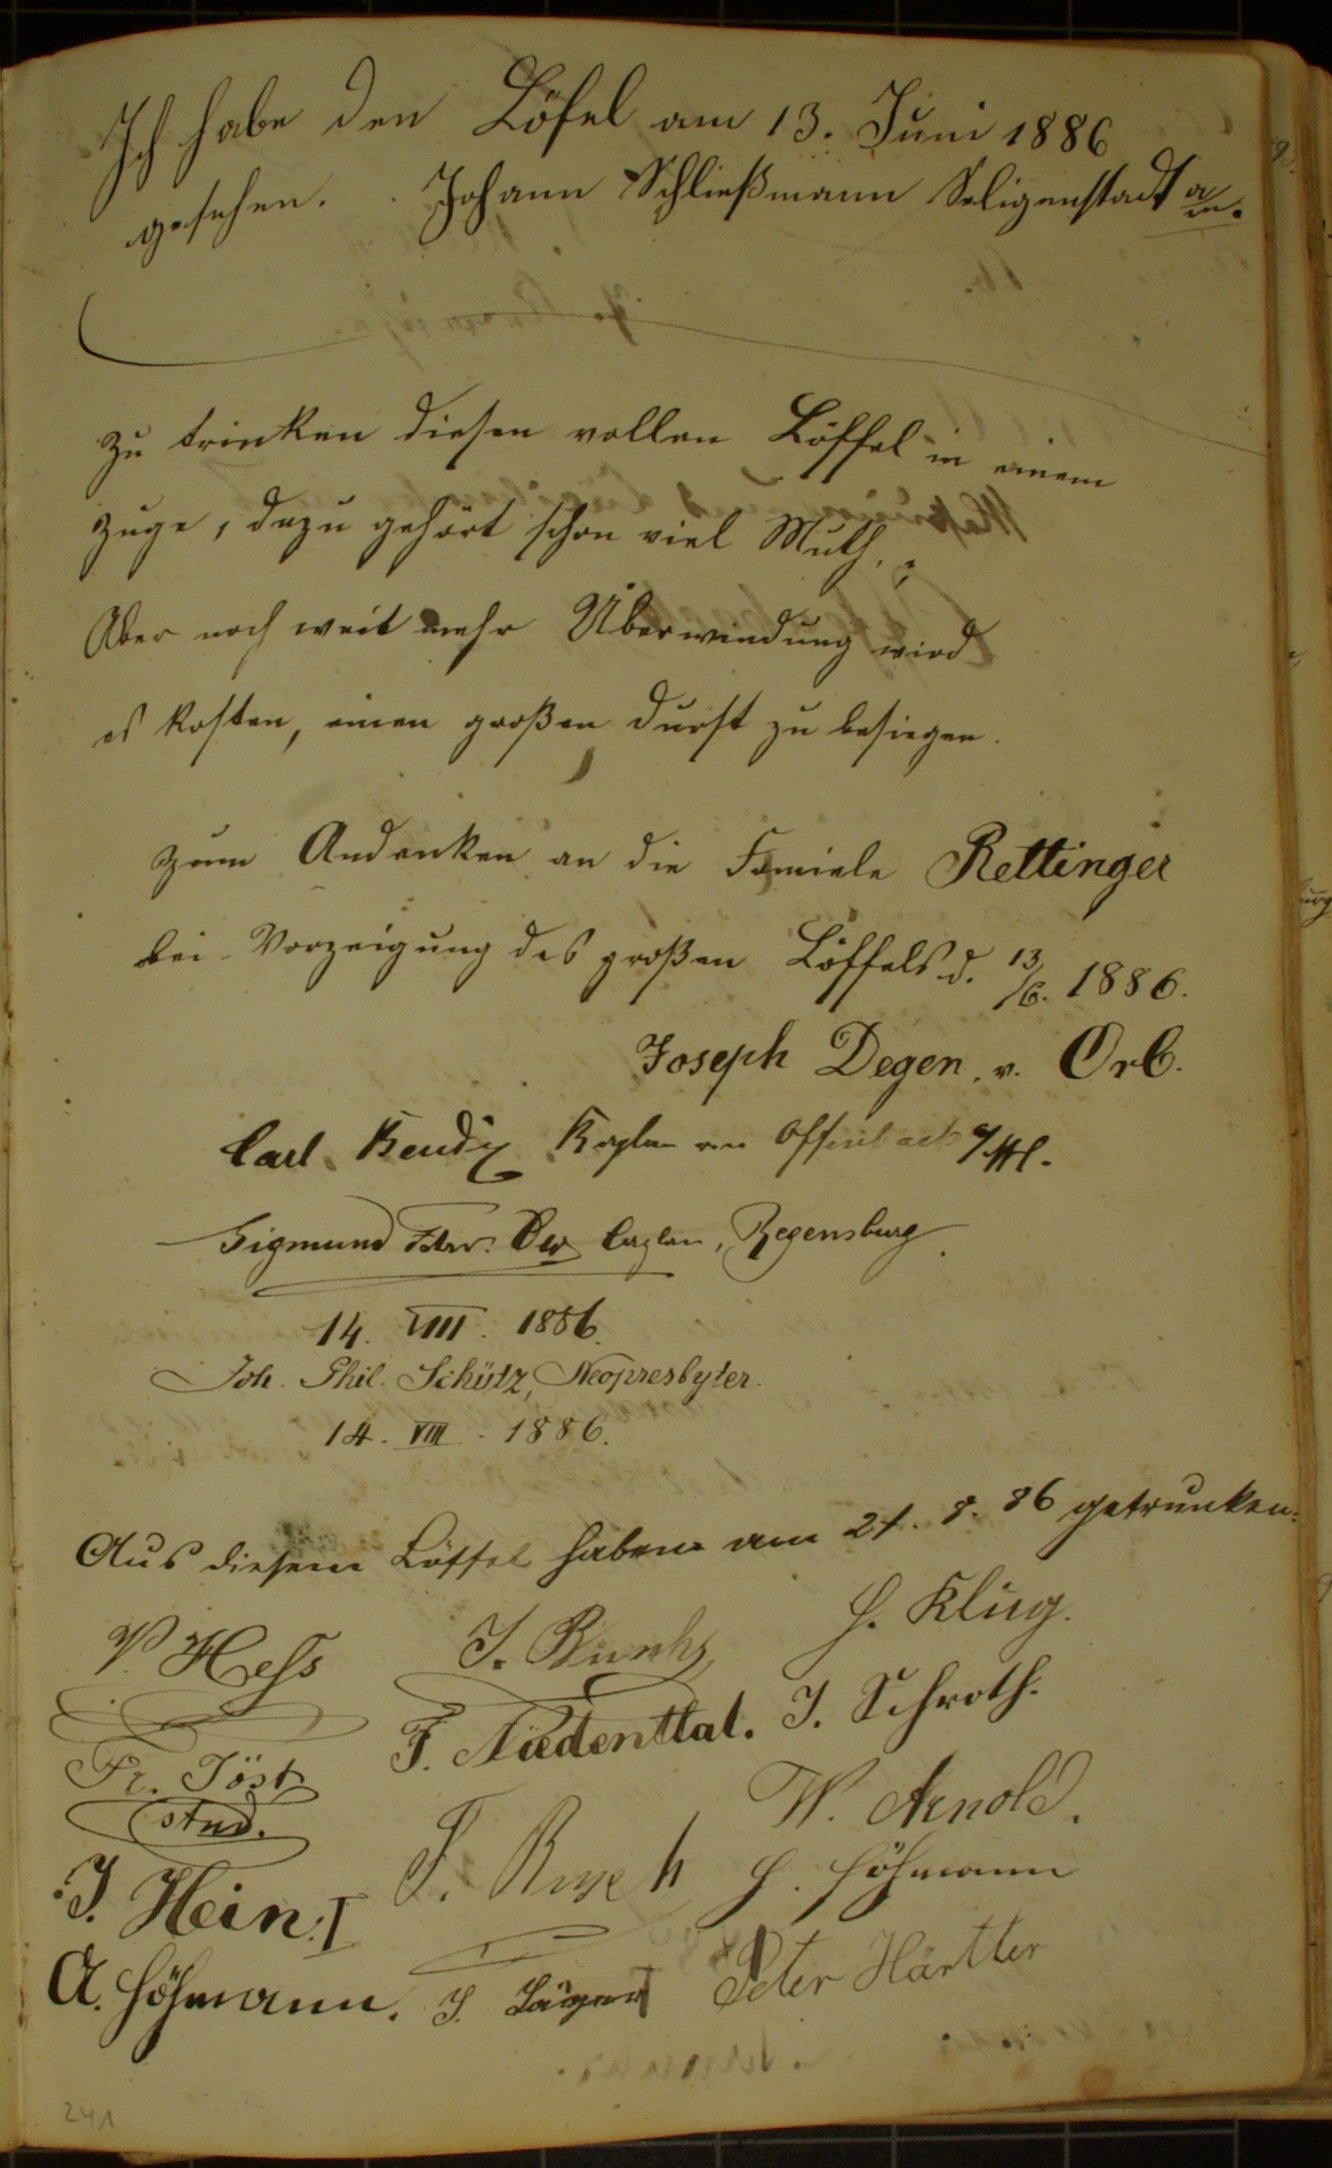 Ich habe den Löfel am 13. Juni 1886
gesehen. Johann Schließmann Seligenstadt a/m.
zu trinken diesen vollen Löffel in einem
zuge, dazu gehört schon viel Muth.,
Aber noch weit mehr Überwindung wird
es kosten, einen großen Durst zu besiegen.
zum Andenken an die Famiele Rettinger
bei Vorzeigung des großen Löffels d. 13/6. 1886.
Joseph Degen. v. Orb.
Carl Kaplan von Offenbach a/M.
Sigmund Frhr. Ow Caplan, Regensburg.
14. VIII. 1886.
Joh. Phil. Schütz, Neopresbyter.
14. VIII. 1886.
Aus diesem Löffel haben am 21. 8. 86 getrunken:
V. Hess
J.
H. Klug.
F. Niedenthal.
J. Schroth.
Fr. Jöst
stud.
W. Arnold.
J. Hein. I
F.
H. Höfmann
A. Höfmann.
J. Jäger
Peter Härtter
241